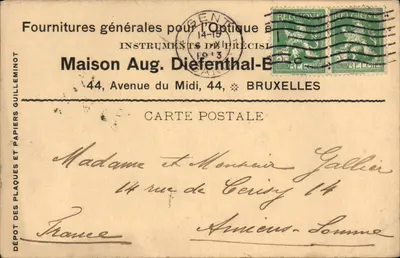 Fournitures générales pour l'Optique
INSTRUMENTS DE PRÉCIS
Maison Aug. Diefenthal-B
44, Avenue du Midi, 44, ※ BRUXELLES
GENT
14-15
1913
GAND
CARTE POSTALE
Madame et Monsieur Gallier
14 rue de Cerisy 14
Amiens-Somme
France
DÉPOT DES PLAQUES ET PAPIERS GUILLEMINOT